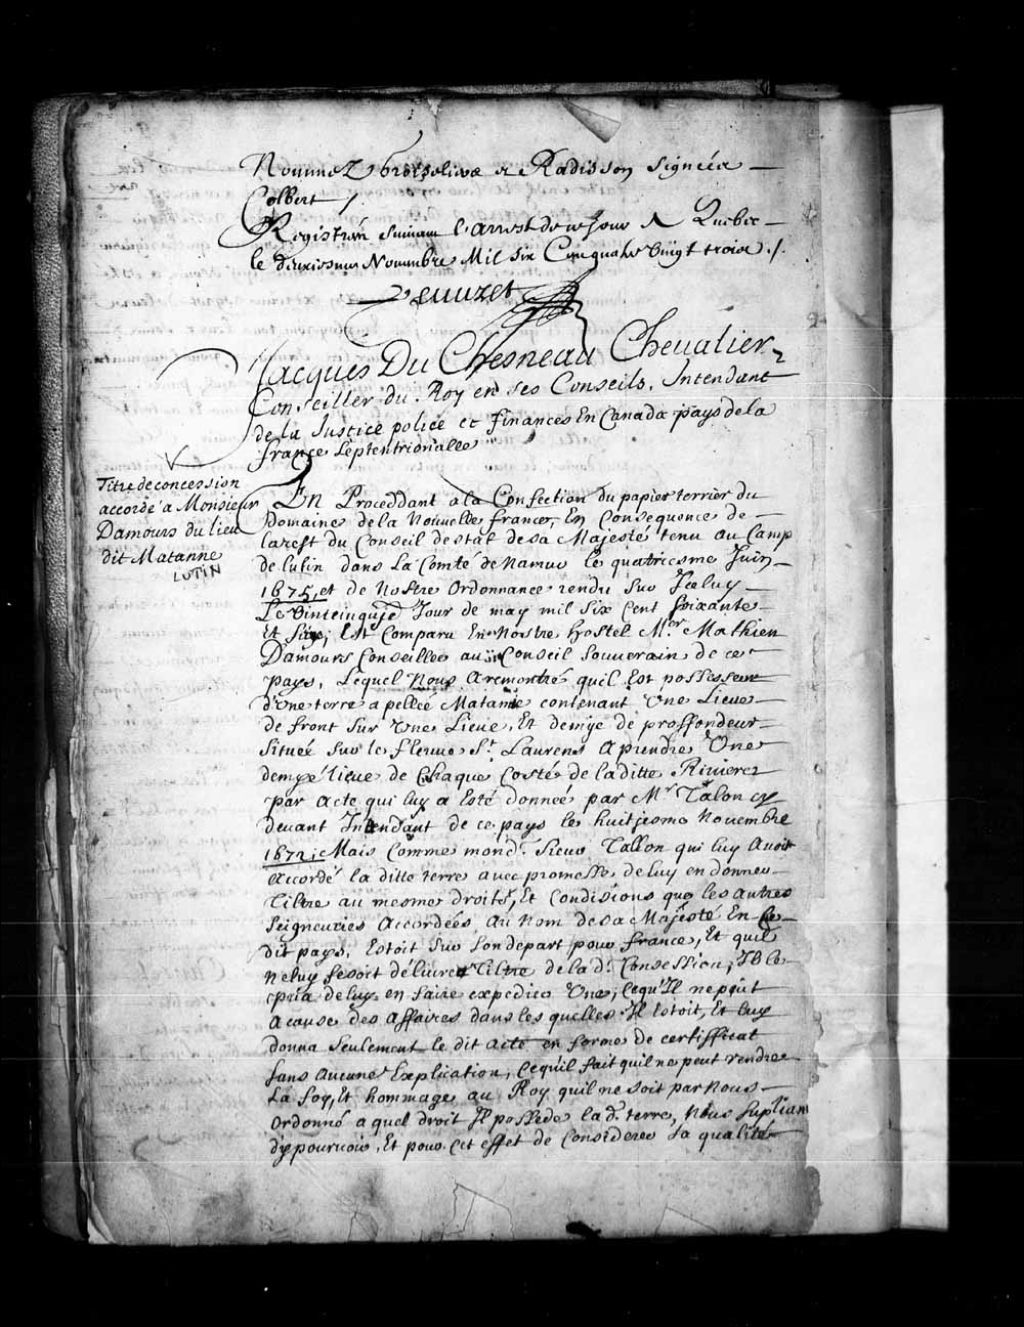 Nommez Groizeliers et Radisson signéea
Colbert /
Registrée suivant l'arrest de ce Jour A Quebec
le deuxiesme Novembre Mil six Cens quatre vingt trois ./.
Peuuret
Jacques Du Chesneau Chevalier
Conseiller du Roy en ses Conseils, Intendant
de la Justice police et finances En Canada pays de la
france septentrionalle
Titre de concession
accordé a Monsieur
Damours du lieu
dit Matanne
LUTIN
En Proceddant a la Confection du papier terrier du
Domaine de la Nouvelle france, En Consequence de
larest du Conseil destat de sa Majesté tenu au Camp
de lutin dans La Comté de Namur le quatriesme Juin
1675, et de Nostre Ordonnance rendu sur Iceluy
Le Jour de may mil six Cent soixante
Et six; Est Comparu En Nostre hostel Mr. Mathieu
Damours Conseiller au Conseil souverain de ce
pays, Lequel Nous a remontré quil Est possesseur
d'Une terre apellée Matane contenant Une Lieue
de front sur Une Lieue, Et demye de proffondeur
située sur le fleuve St. Laurens A prendre Une
demye lieue de Chaque Costé de la ditte Riviere
par acte qui luy a Esté donnée par Mr Talon cy
devant Intendant de ce pays le huitiesme Novembre
1672; Mais Comme mond. sieur Tallon qui luy Avoit
Accordé la ditte terre avec promesse de luy en donner
Tiltre au mesme droits, Et Condisions que les autres
seigneuries Accordées Au Nom de sa Majesté En ce
dit pays, Estoit sur son depart pour france, Et quil
ne luy fesoit délivrer Tiltre de la d. Consession, Il le
pria de luy en faire expedier Une, Ce qu'Il ne peut
A cause des affaires dans les quelles Il Estoit, Et luy
donna seulement le dit acte en forme de certifficat
sans aucune Explication, Ce quil fait quil ne peut rendre
La foy, Et hommage au Roy quil ne soit par Nous
Ordonné a quel droit Il possede lad. terre, Nous supliant
dy pourvoir, Et pour Cet effet de Considerer sa qualité